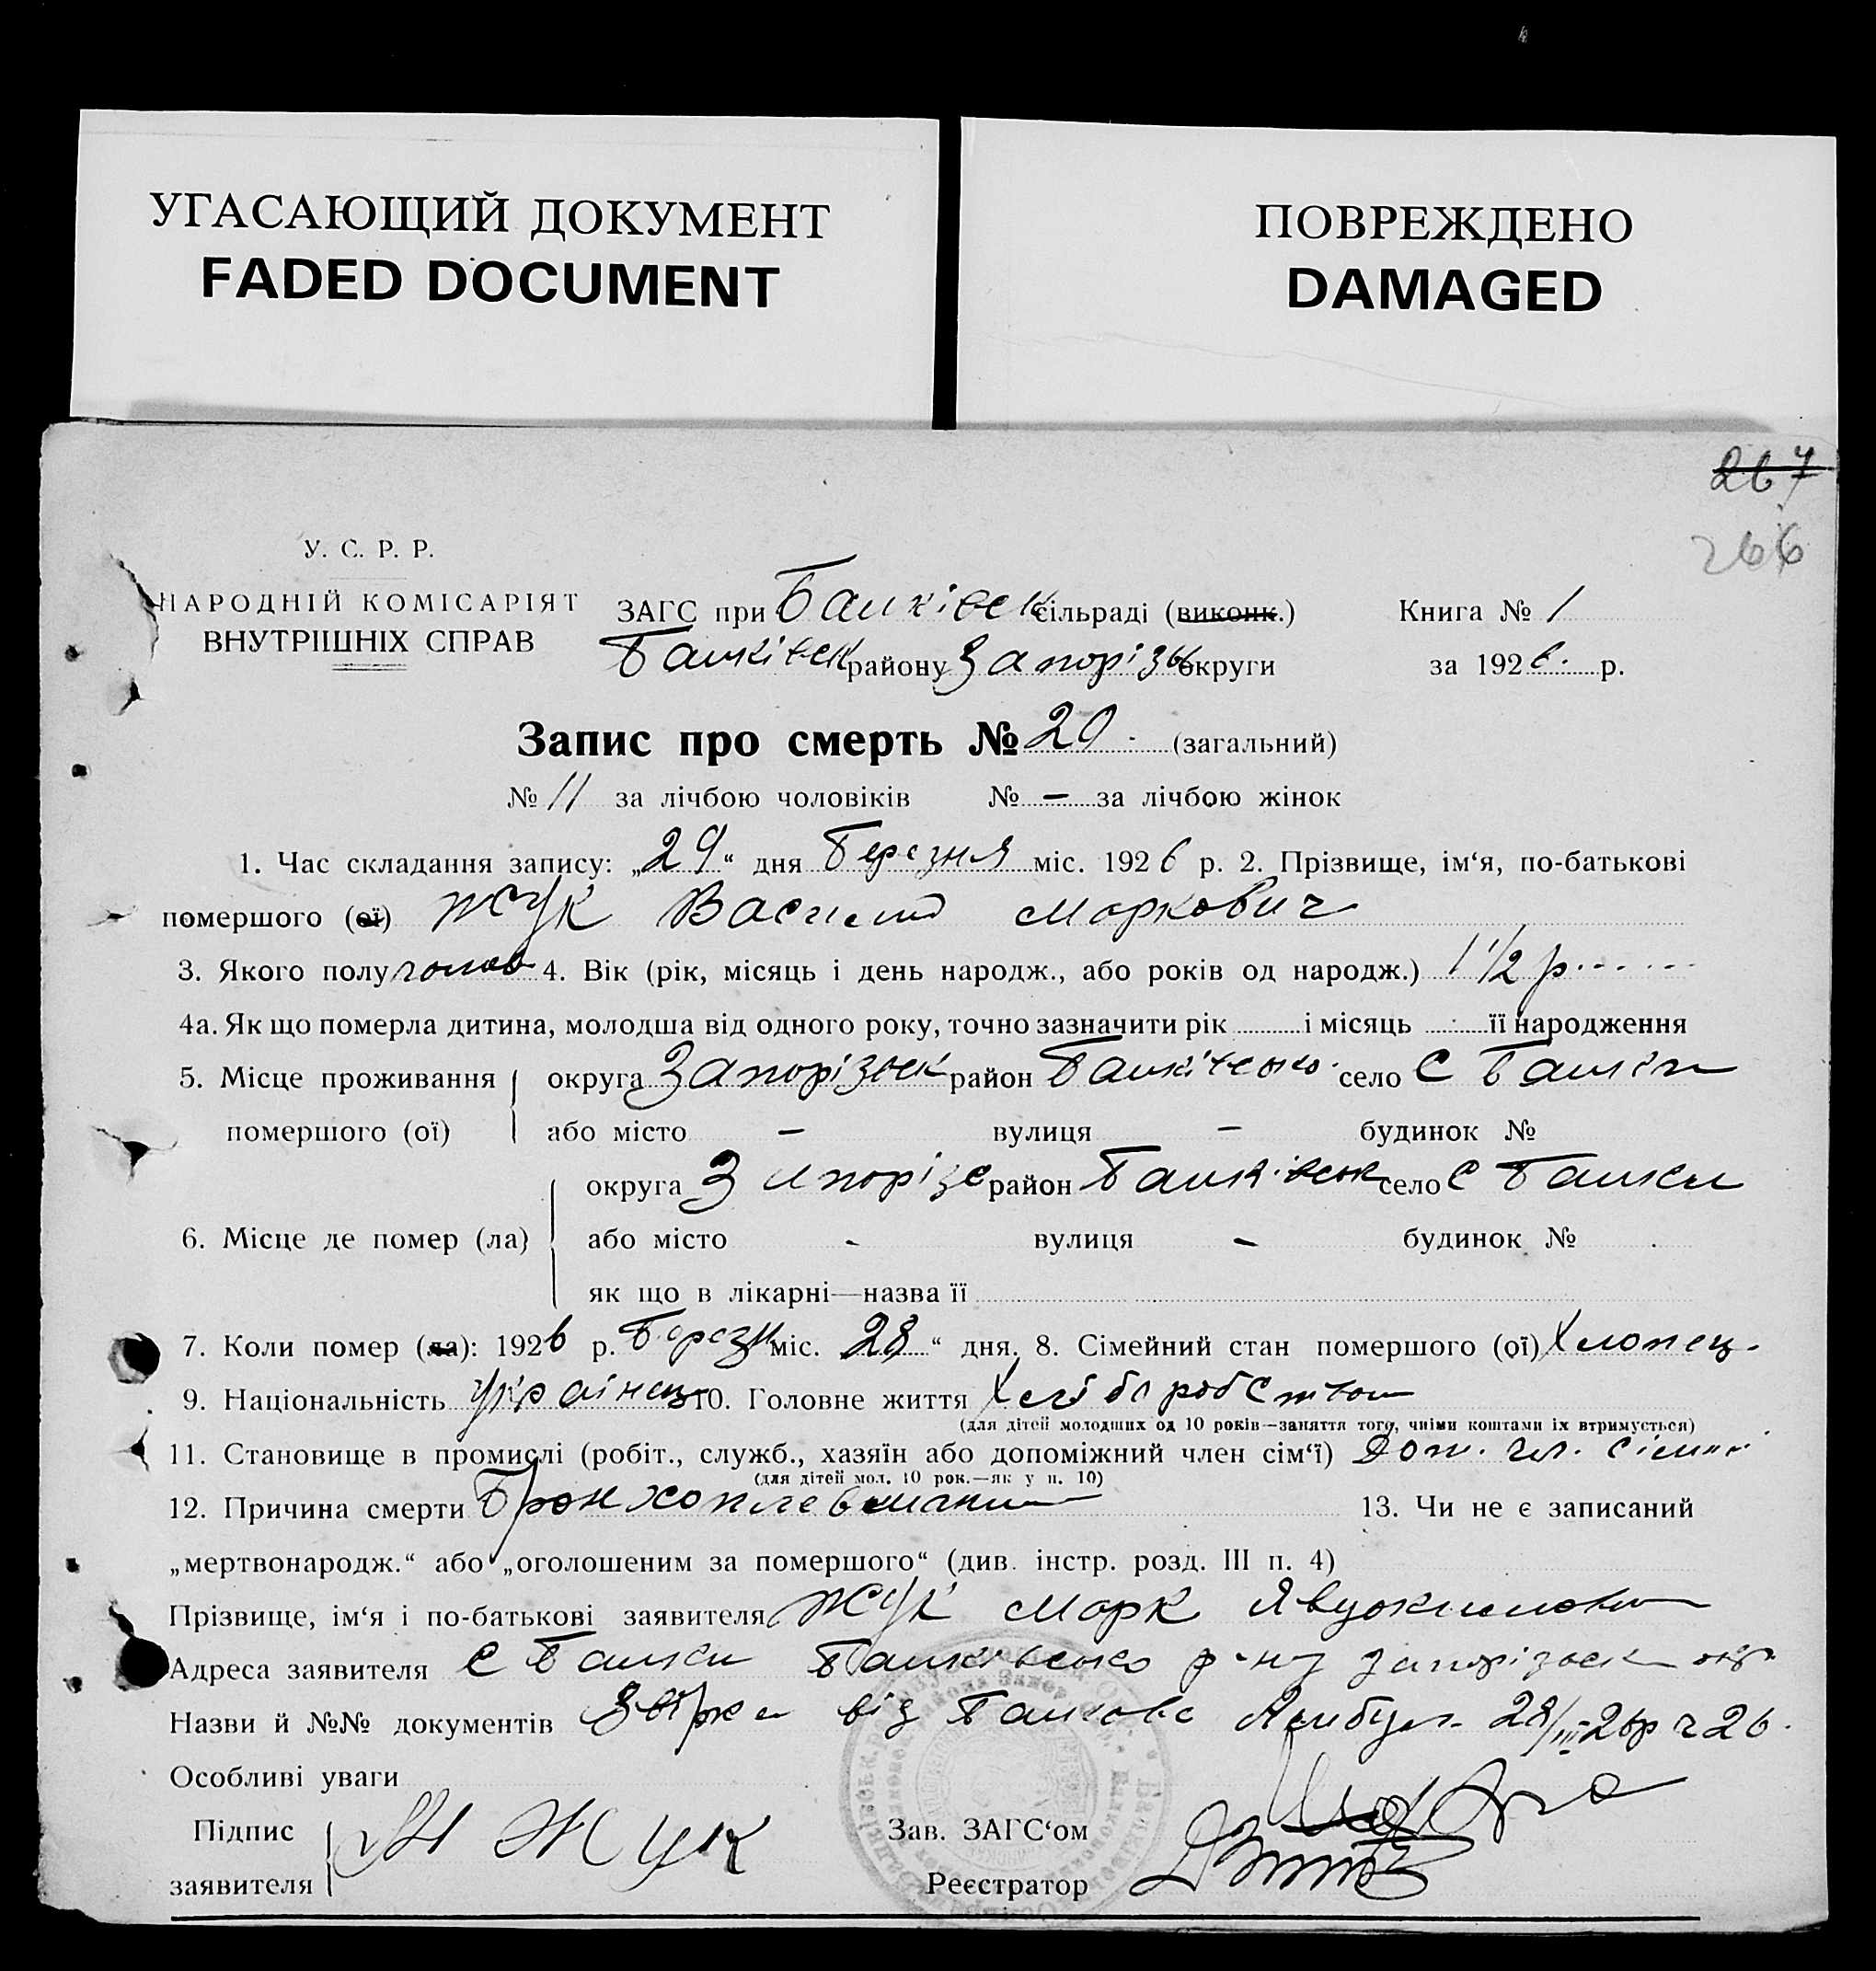 УГАСАЮЩИЙ ДОКУМЕНТ
FADED DOCUMENT
ПОВРЕЖДЕНО
DAMAGED
267
266
У. С. Р. Р.
НАРОДНІЙ КОМІСАРІЯТ
ВНУТРІШНІХ СПРАВ
ЗАГС при Балківськ сільраді (виконк.) Книга № 1
Балківськ району Запорізьк округи за 1926. р.
Запис про смерть № 20. (загальний)
№ 11 за лічбою чоловіків № — за лічбою жінок
1. Час складання запису: „29“ дня Березня міс. 1926 р. 2. Прізвище, ім‘я, по-батькові
помершого (ої) Жук Василь Маркович
3. Якого полу чолов 4. Вік (рік, місяць і день народж., або років од народж.) 1 1/2 р.
4а. Як що померла дитина, молодша від одного року, точно зазначити рік і місяць її народження
5. Місце проживання округа Запорізьк район Балківсько село С Балки
помершого (ої) або місто — вулиця — будинок №
округа Запорізь район Балківськ село С Балки
6. Місце де помер (ла) або місто - вулиця - будинок №
як що в лікарні—назва її
7. Коли помер (ла): 1926 р. Березн міс. 28“ дня. 8. Сімейний стан помершого (ої) Хлопець.
9. Національність Українець 10. Головне життя Хліборобство
(для дітей молодших од 10 років—заняття того, чиїми коштами їх втримується)
11. Становище в промислі (робіт., служб., хазяїн або допоміжний член сім‘ї) Доп. чл. сімні
(для дітей мол. 10 рок.—як у п. 10)
12. Причина смерти 13. Чи не є записаний
„мертвонародж.“ або „оголошеним за помершого“ (див. інстр. розд. III п. 4)
Прізвище, ім‘я і по-батькові заявителя Жук Марк Явдокимович
Адреса заявителя С Балки Балківсько р-ну Запорізьк окр
Назви й №№ документів від 28/III-26р ч 26.
Особливі уваги
Підпис М Жук Зав. ЗАГС‘ом
заявителя Реєстратор